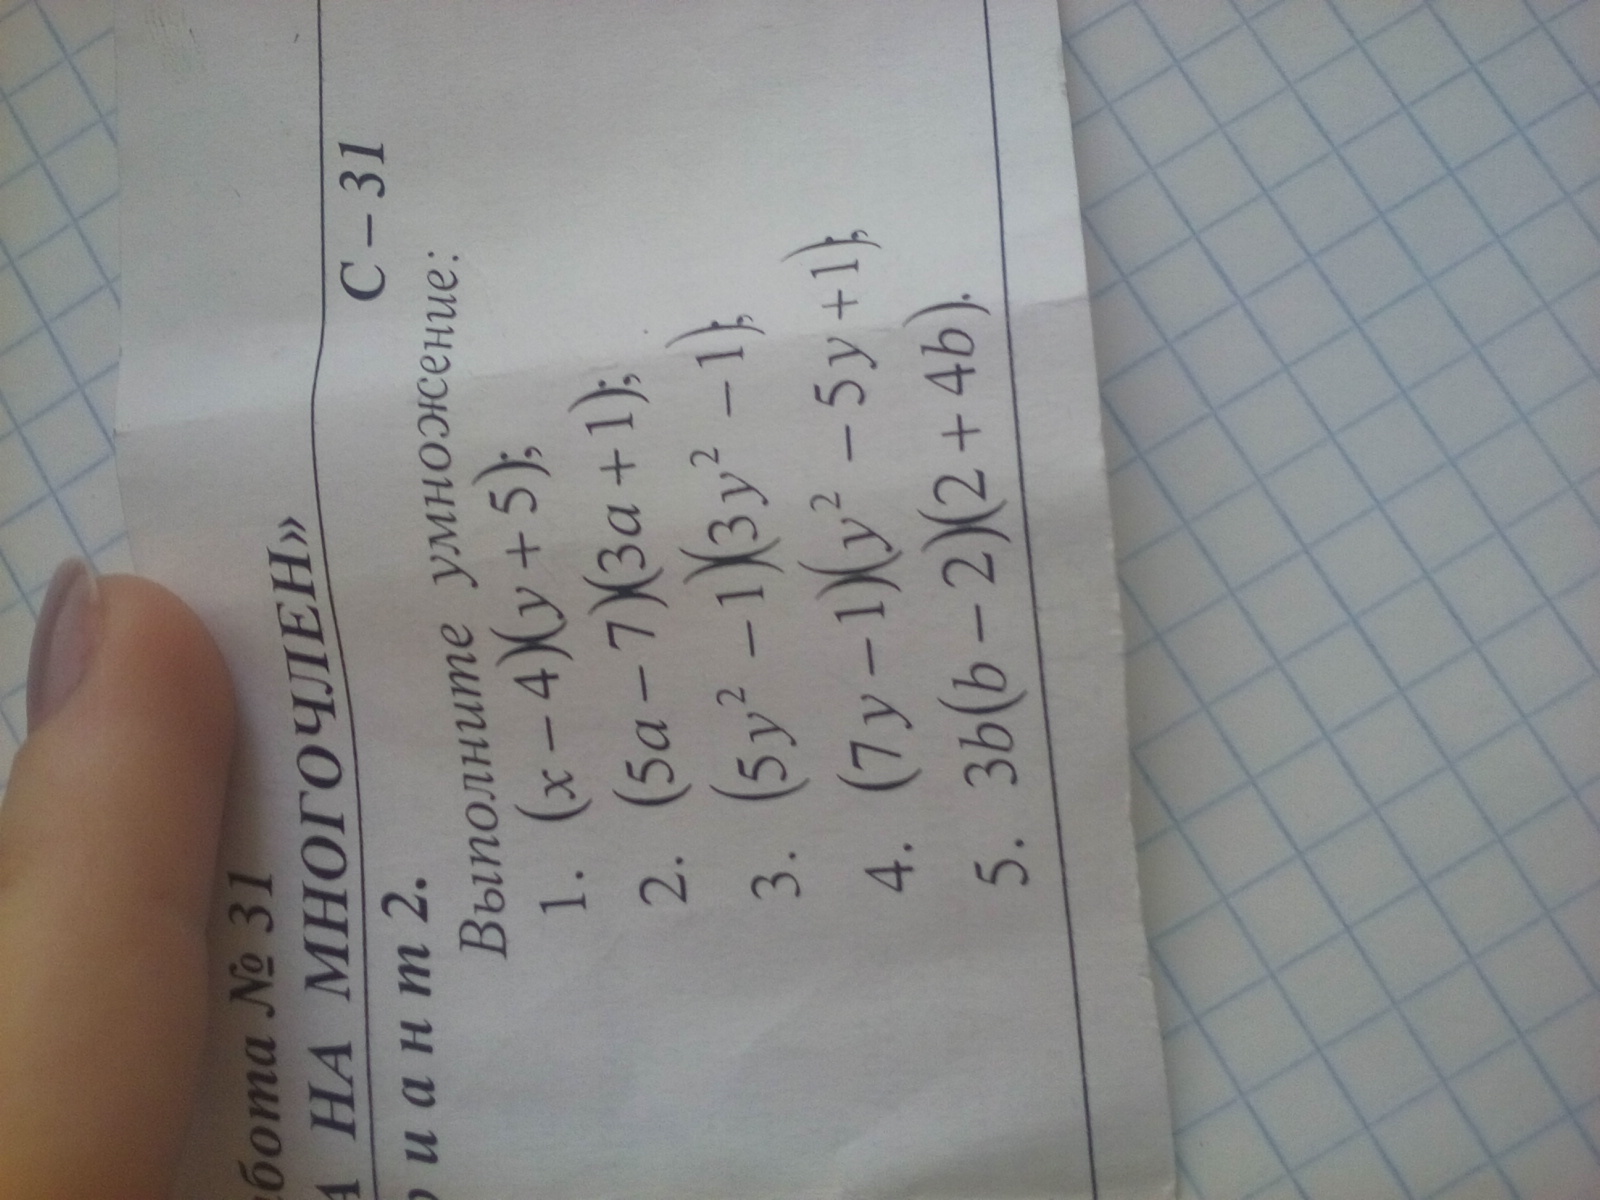 бота № 31
А НА МНОГОЧЛЕН»
и а н т 2.
С – 31
Выполните умножение:
1. (x − 4)(y + 5);
2. (5a − 7)(3a + 1);
3. (5y² − 1)(3y² − 1);
4. (7y − 1)(y² − 5y + 1);
5. 3b(b − 2)(2 + 4b).